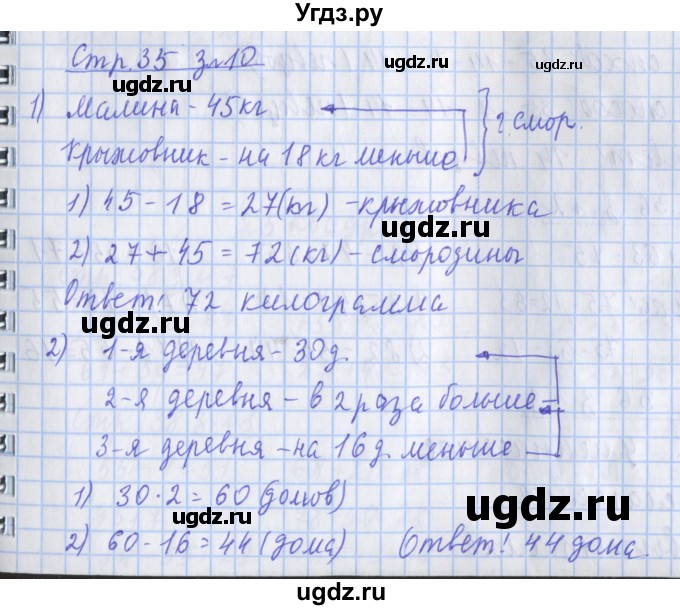 Угдз.ру
Стр.35 з.10
ugdz.ru
ugdz.ru
1) Малина - 45кг } ? смор.
Крыжовник - на 18 кг меньше
1) 45 - 18 = 27(кг) - крыжовника
ugdz.ru
2) 27 + 45 = 72 (кг) - смородины
Ответ! 72 килограмма
ugdz.ru
2) 1-я деревня - 30д.
2-я деревня - в 2 раза больше
3-я деревня - на 16 д. меньше
1) 30 · 2 = 60 (домов)
ugdz.ru
ugdz.ru
2) 60 - 16 = 44 (дома) Ответ! 44 дома.
ugdz.ru